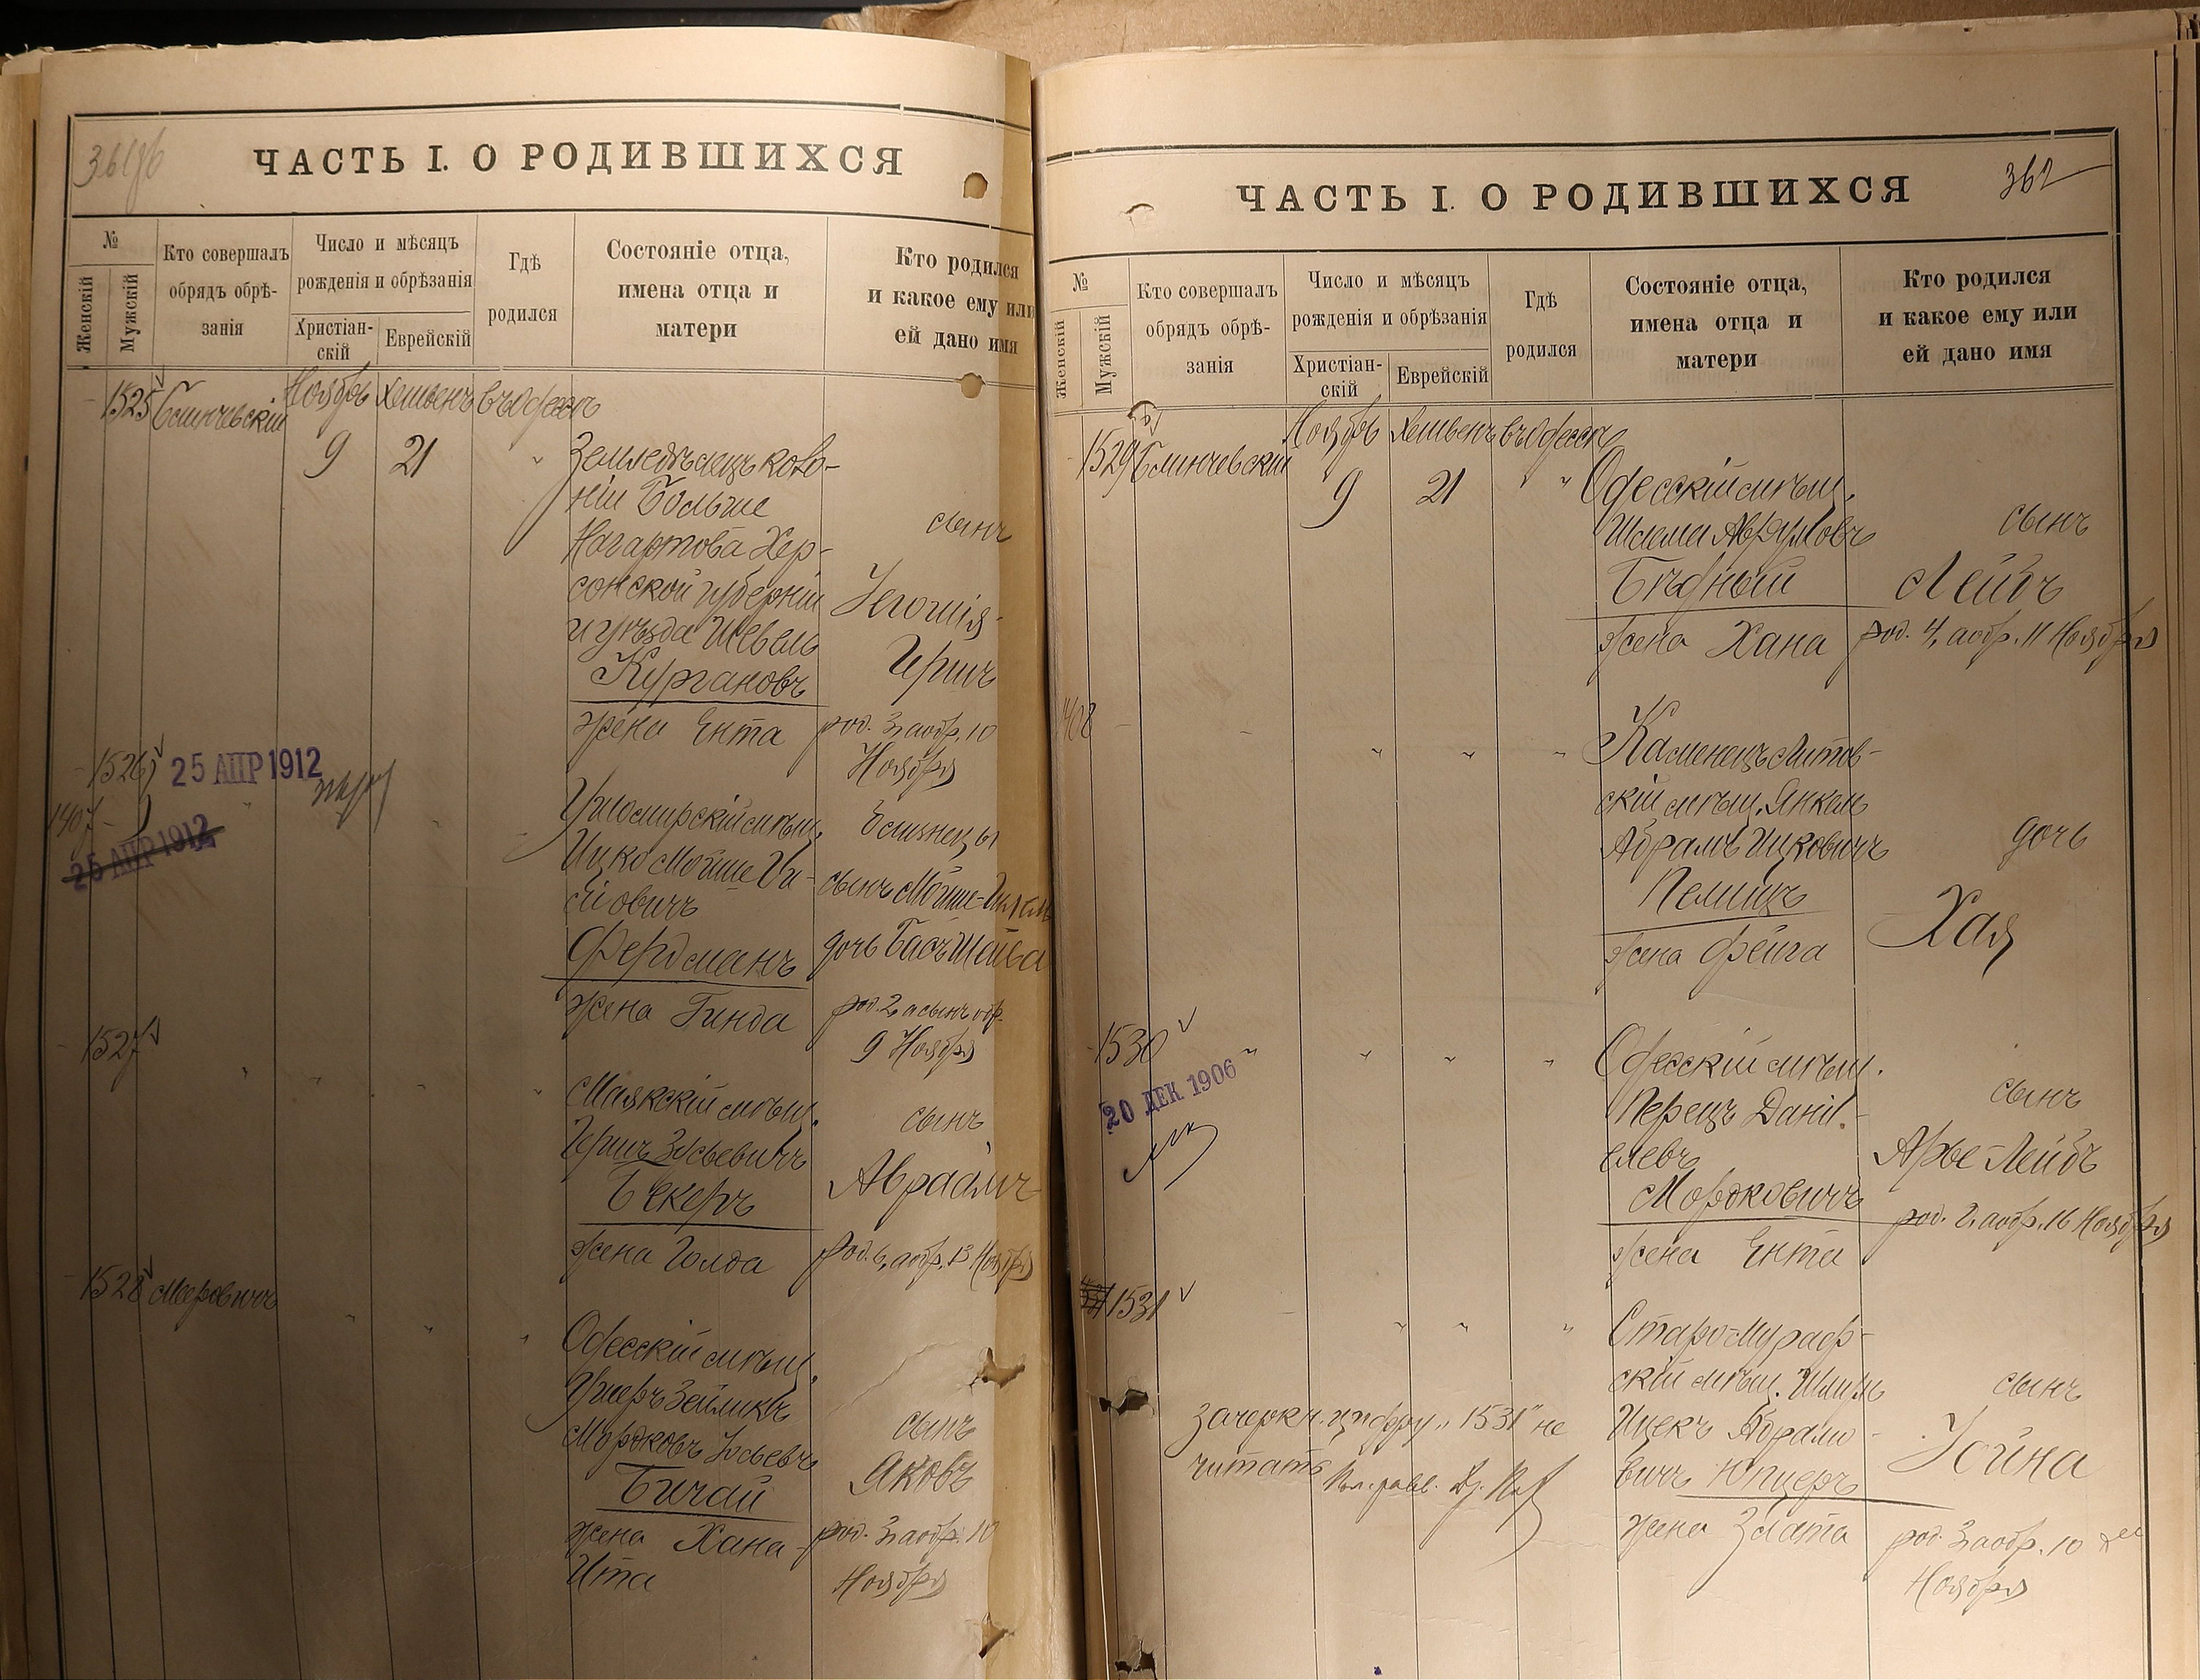 ЧАСТЬ I. О РОДИВШИХСЯ
№
Женскій
Мужскій
Кто совершалъ
обрядъ обрѣ-
занія
Число и мѣсяцъ
рожденія и обрѣзанія
Христіан-
скій
Еврейскій
Гдѣ
родился
Состояніе отца,
имена отца и
матери
Кто родился
и какое ему или
ей дано имя
1525 Блинчевскій Ноябрь Хешвенъ въ Одессѣ
9 21 " Земледѣлецъ коло-
ніи Больше
Нагартова Хер-
сонской губерніи
и уѣзда Шевель
Кургановъ
жена Ента
сынъ
Іегошія-
Гершъ
род. 3, а обр. 10
Ноября
1526
25 АПР 1912
1407
25 АПР 1912
мѣщ.
Ицко Мойше
овичъ
Фердманъ
жена Гинда
Близнецы
сынъ Мойше-
дочь Бася Шейва
род. 2, а сынъ обр.
9 Ноября
1527
Маякскій мѣщ.
Гершъ Зусьевичъ
Бекеръ
жена Голда
сынъ
Авраамъ
род. 6, а обр. 13 Ноября
1528 Мееровичъ
Одесскій мѣщ.
Мордковъ Іосьевъ
Бичай
жена Хана-
Ита
сынъ
Яковъ
род. 3, а обр. 10
Ноября
ЧАСТЬ I. О РОДИВШИХСЯ
362
№
Женскій
Мужскій
Кто совершалъ
обрядъ обрѣ-
занія
Число и мѣсяцъ
рожденія и обрѣзанія
Христіан-
скій
Еврейскій
Гдѣ
родился
Состояніе отца,
имена отца и
матери
Кто родился
и какое ему или
ей дано имя
1529 Блинчевскій Ноябрь Хешвенъ въ Одессѣ
9 21 " Одесскій мѣщ.
Шлема Аврумовъ
Бѣдный
жена Хана
сынъ
Лейбъ
род. 4, а обр. 11 Ноября
1408
Каменецъ Литов-
скій мѣщ. Янкель
Абрамъ Ицковичъ
жена Фейга
дочь
Хая
1530
20 ДЕК 1906
Одесскій мѣщ.
Перецъ Даніи-
елевъ
Мордковичъ
жена Ента
сынъ
Арье-Лейбъ
род. 2, а обр. 16 Ноября
1531
Старо-Мураф-
скій мѣщ. Шмуль
Ицекъ Абрамо-
вичъ
жена Злата
сынъ
Іойна
род. 3, а обр. 10
Ноября
зачеркн. цифру „1531" не
читать